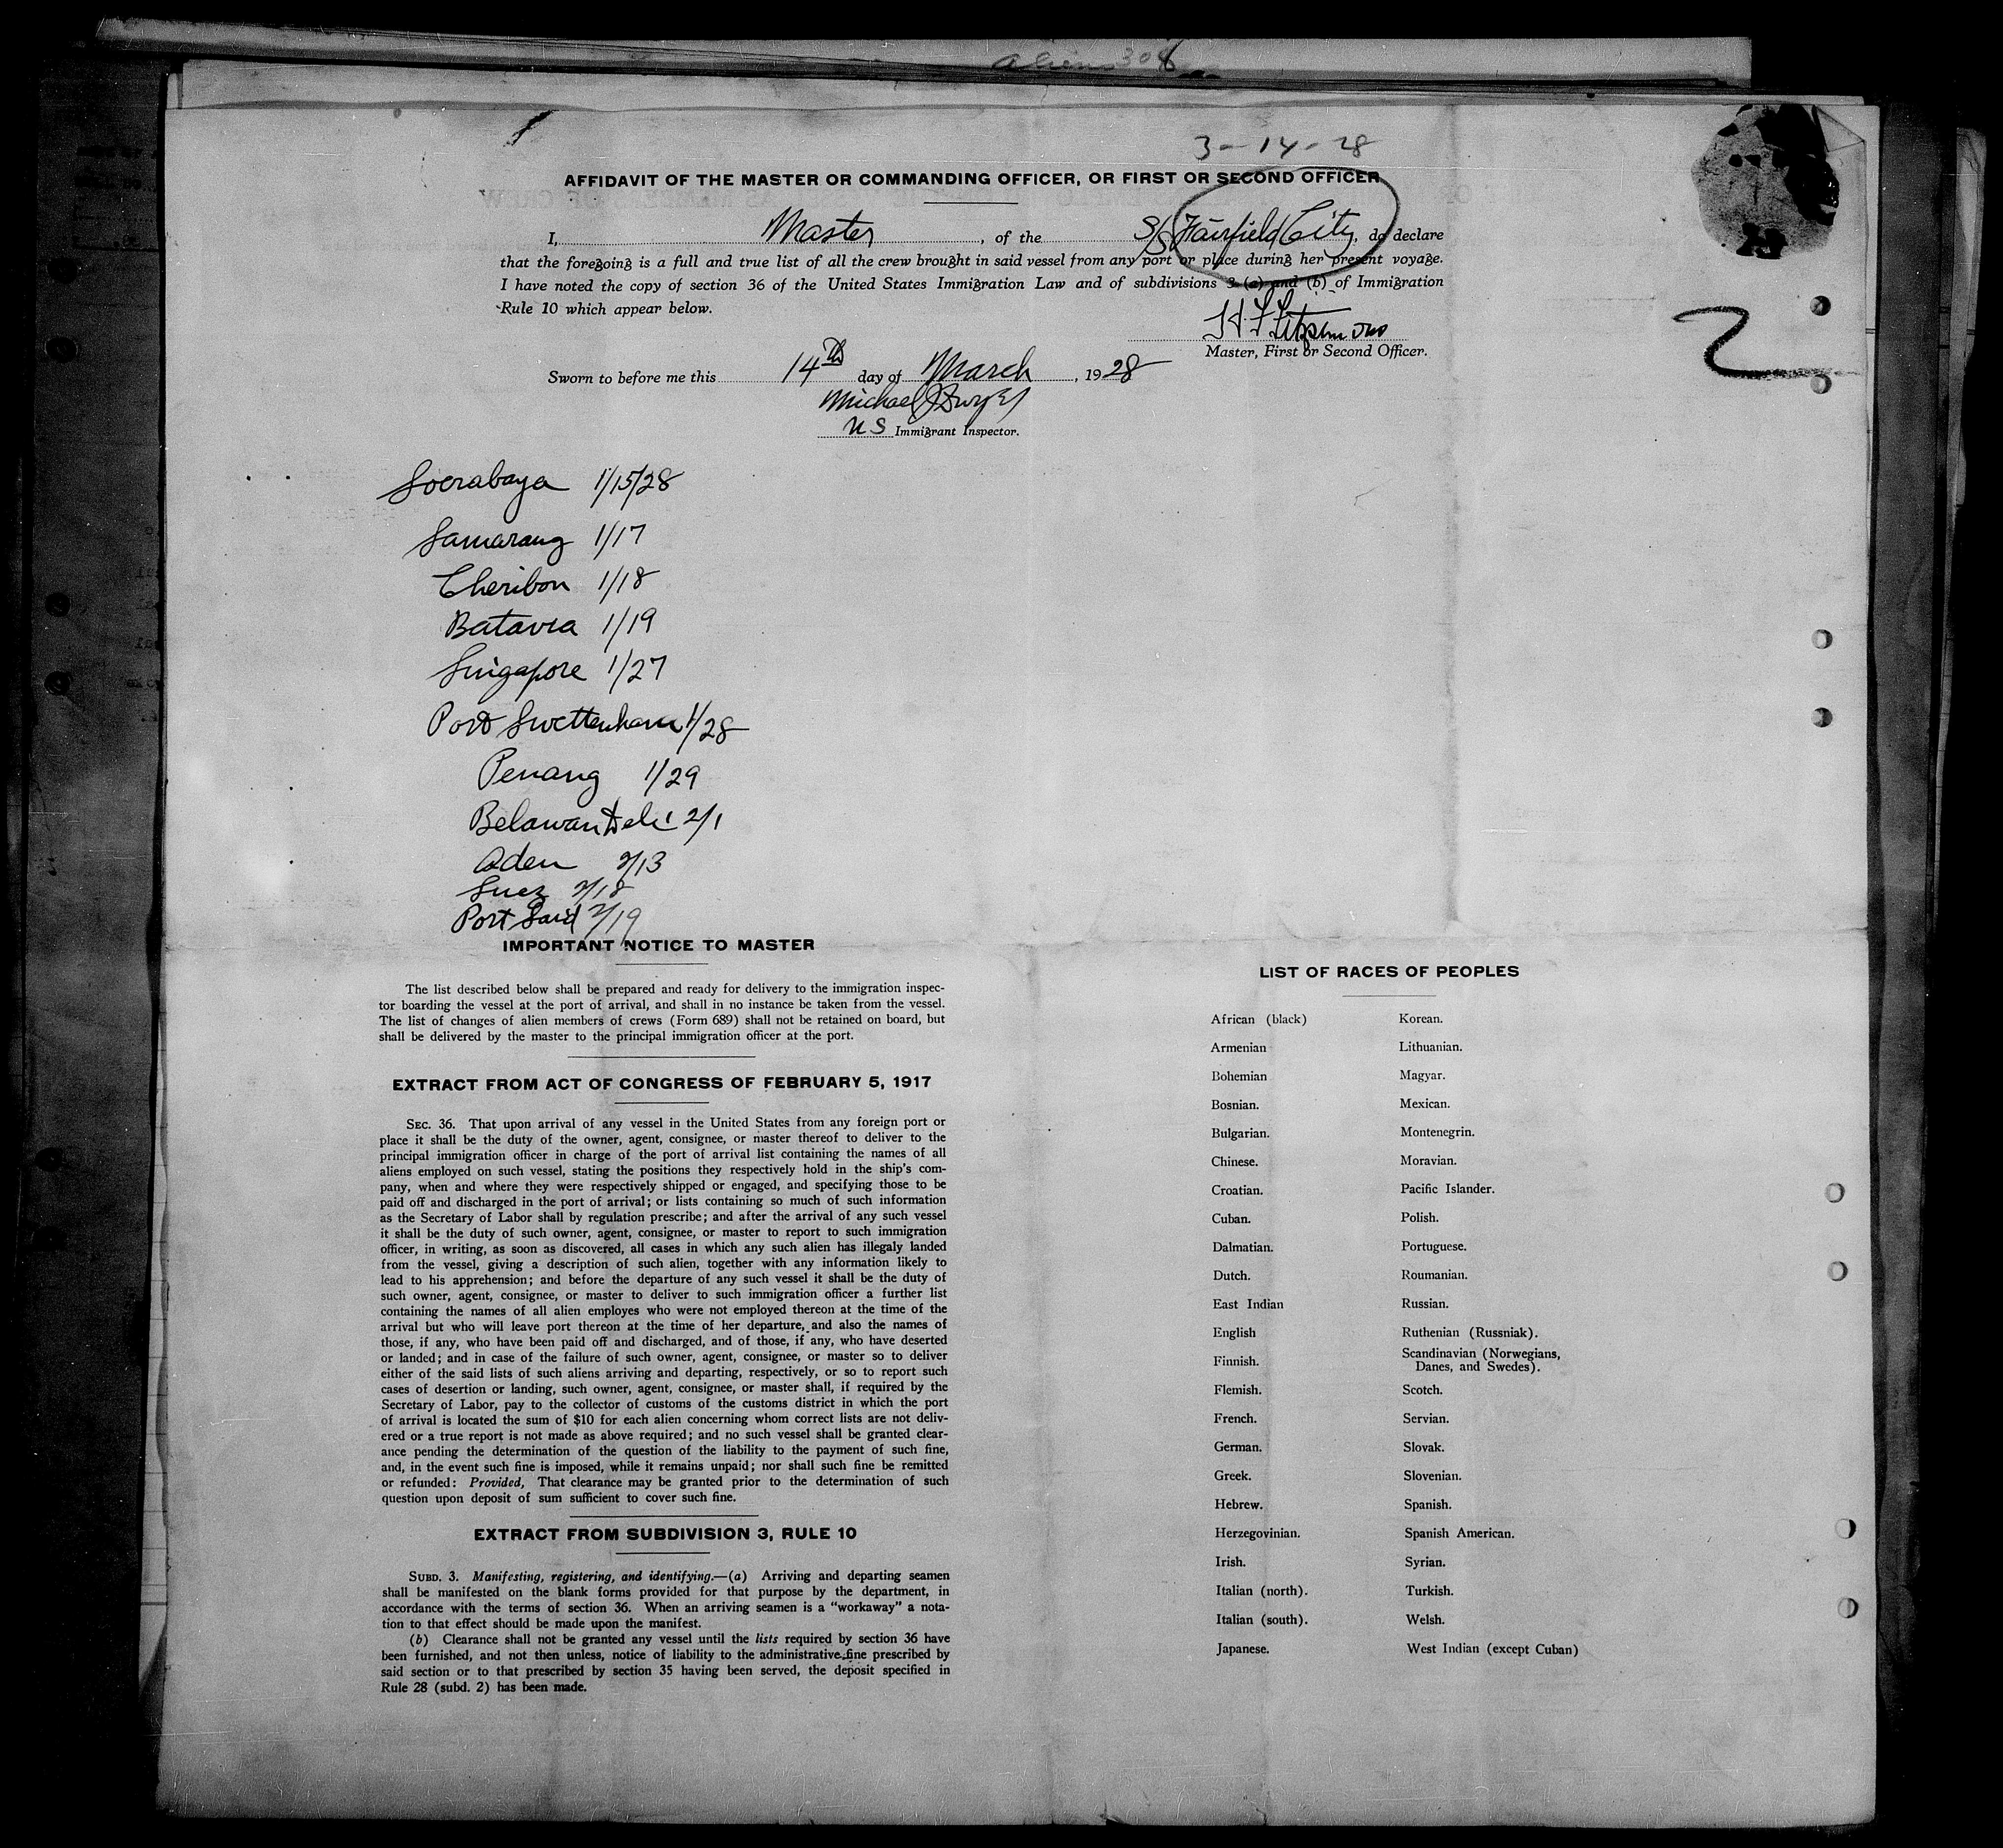 aliens 30
3-14-28
AFFIDAVIT OF THE MASTER OR COMMANDING OFFICER, OR FIRST OR SECOND OFFICER
I, Master, of the S/S Fairfield City, do declare
that the foregoing is a full and true list of all the crew brought in said vessel from any port or place during her present voyage.
I have noted the copy of section 36 of the United States Immigration Law and of subdivisions 3 (a) and (b) of Immigration
Rule 10 which appear below.
Master, First or Second Officer.
2
Sworn to before me this 14th day of March, 1928
Michael J Dwyer
US Immigrant Inspector.
Soerabaya 1/15/28
Samarang 1/17
Cheribon 1/18
Batavia 1/19
Singapore 1/27
Port Swettenham 1/28
Penang 1/29
Belawan Deli 2/1
Aden 2/13
Suez 2/18
Port Said 2/19
IMPORTANT NOTICE TO MASTER
The list described below shall be prepared and ready for delivery to the immigration inspec-
tor boarding the vessel at the port of arrival, and shall in no instance be taken from the vessel.
The list of changes of alien members of crews (Form 689) shall not be retained on board, but
shall be delivered by the master to the principal immigration officer at the port.
EXTRACT FROM ACT OF CONGRESS OF FEBRUARY 5, 1917
SEC. 36. That upon arrival of any vessel in the United States from any foreign port or
place it shall be the duty of the owner, agent, consignee, or master thereof to deliver to the
principal immigration officer in charge of the port of arrival list containing the names of all
aliens employed on such vessel, stating the positions they respectively hold in the ship's com-
pany, when and where they were respectively shipped or engaged, and specifying those to be
paid off and discharged in the port of arrival; or lists containing so much of such information
as the Secretary of Labor shall by regulation prescribe; and after the arrival of any such vessel
it shall be the duty of such owner, agent, consignee, or master to report to such immigration
officer, in writing, as soon as discovered, all cases in which any such alien has illegaly landed
from the vessel, giving a description of such alien, together with any information likely to
lead to his apprehension; and before the departure of any such vessel it shall be the duty of
such owner, agent, consignee, or master to deliver to such immigration officer a further list
containing the names of all alien employes who were not employed thereon at the time of the
arrival but who will leave port thereon at the time of her departure, and also the names of
those, if any, who have been paid off and discharged, and of those, if any, who have deserted
or landed; and in case of the failure of such owner, agent, consignee, or master so to deliver
either of the said lists of such aliens arriving and departing, respectively, or so to report such
cases of desertion or landing, such owner, agent, consignee, or master shall, if required by the
Secretary of Labor, pay to the collector of customs of the customs district in which the port
of arrival is located the sum of $10 for each alien concerning whom correct lists are not deliv-
ered or a true report is not made as above required; and no such vessel shall be granted clear-
ance pending the determination of the question of the liability to the payment of such fine,
and, in the event such fine is imposed, while it remains unpaid; nor shall such fine be remitted
or refunded: Provided, That clearance may be granted prior to the determination of such
question upon deposit of sum sufficient to cover such fine.
EXTRACT FROM SUBDIVISION 3, RULE 10
SUBD. 3. Manifesting, registering, and identifying.—(a) Arriving and departing seamen
shall be manifested on the blank forms provided for that purpose by the department, in
accordance with the terms of section 36. When an arriving seamen is a "workaway" a nota-
tion to that effect should be made upon the manifest.
(b) Clearance shall not be granted any vessel until the lists required by section 36 have
been furnished, and not then unless, notice of liability to the administrative fine prescribed by
said section or to that prescribed by section 35 having been served, the deposit specified in
Rule 28 (subd. 2) has been made.
LIST OF RACES OF PEOPLES
African (black)
Armenian
Bohemian
Bosnian.
Bulgarian.
Chinese.
Croatian.
Cuban.
Dalmatian.
Dutch.
East Indian
English
Finnish.
Flemish.
French.
German.
Greek.
Hebrew.
Herzegovinian.
Irish.
Italian (north).
Italian (south).
Japanese.
Korean.
Lithuanian.
Magyar.
Mexican.
Montenegrin.
Moravian.
Pacific Islander.
Polish.
Portuguese.
Roumanian.
Russian.
Ruthenian (Russniak).
Scandinavian (Norwegians,
Danes, and Swedes).
Scotch.
Servian.
Slovak.
Slovenian.
Spanish.
Spanish American.
Syrian.
Turkish.
Welsh.
West Indian (except Cuban)